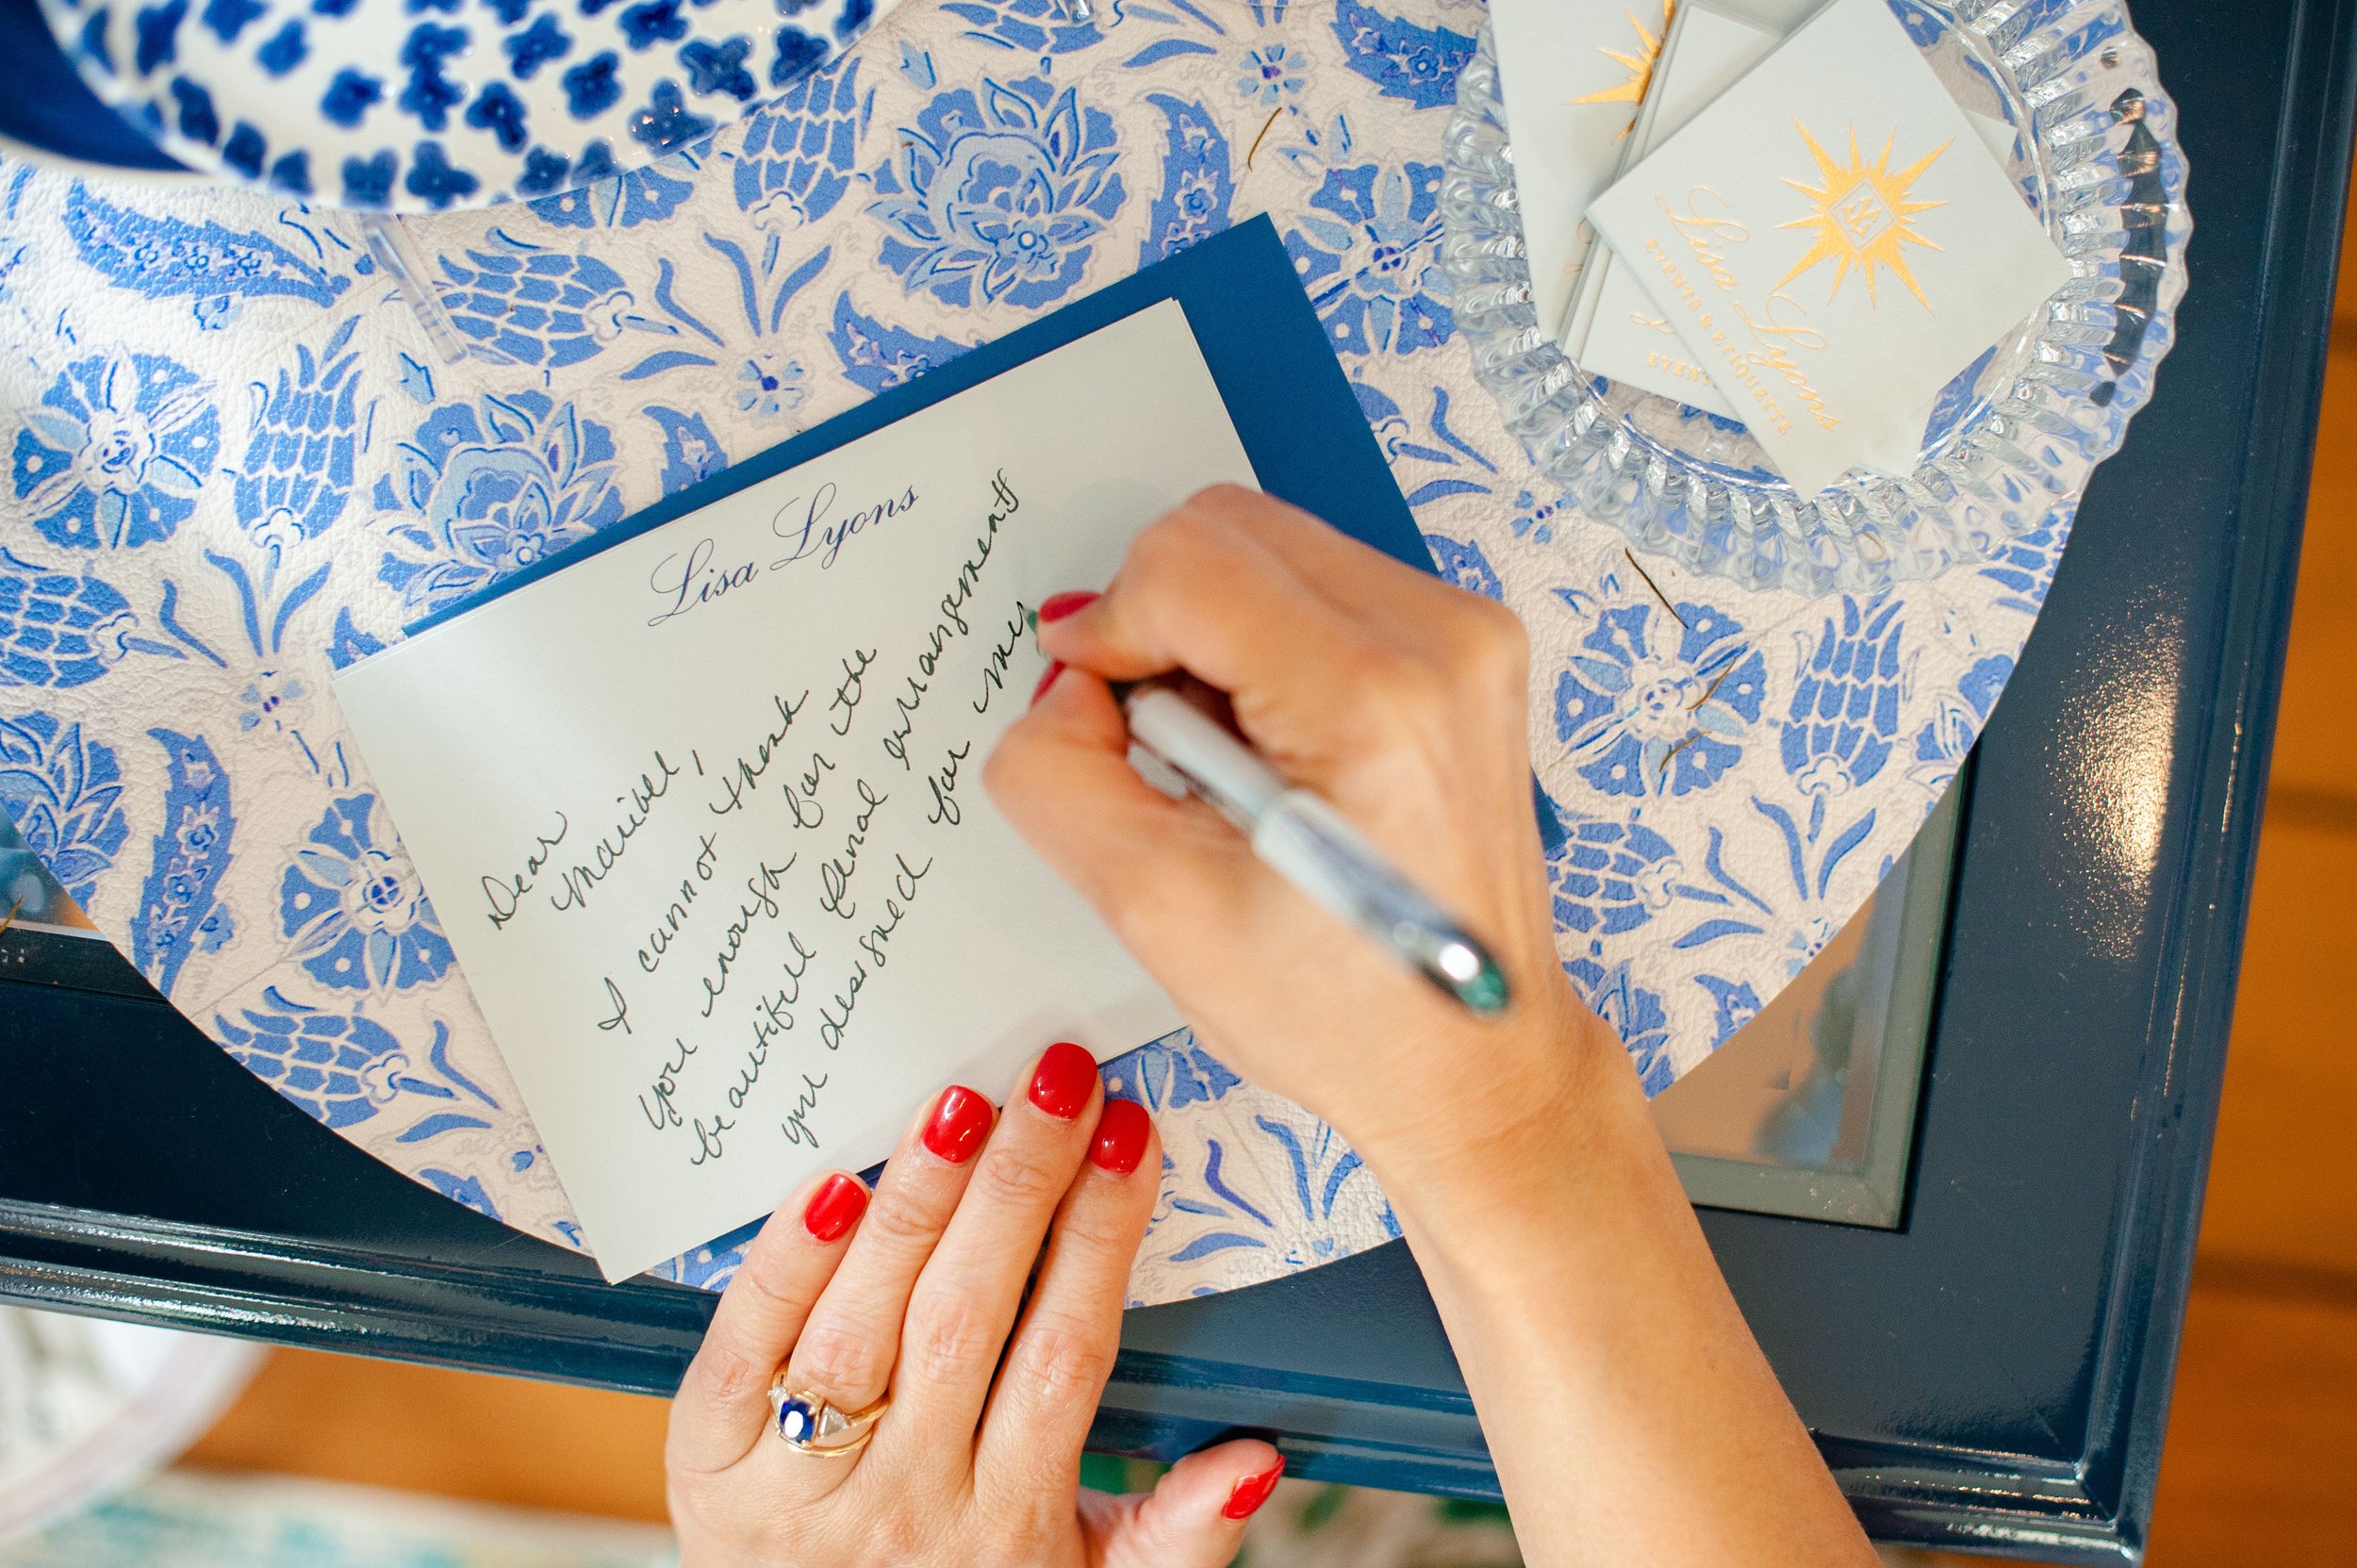 Lisa Lyons
Dear
Maribel,
I cannot thank
you enough for the
beautiful floral arrangements
you designed for my
Lisa Lyons
EVENTS & ETIQUETTE
EVEN